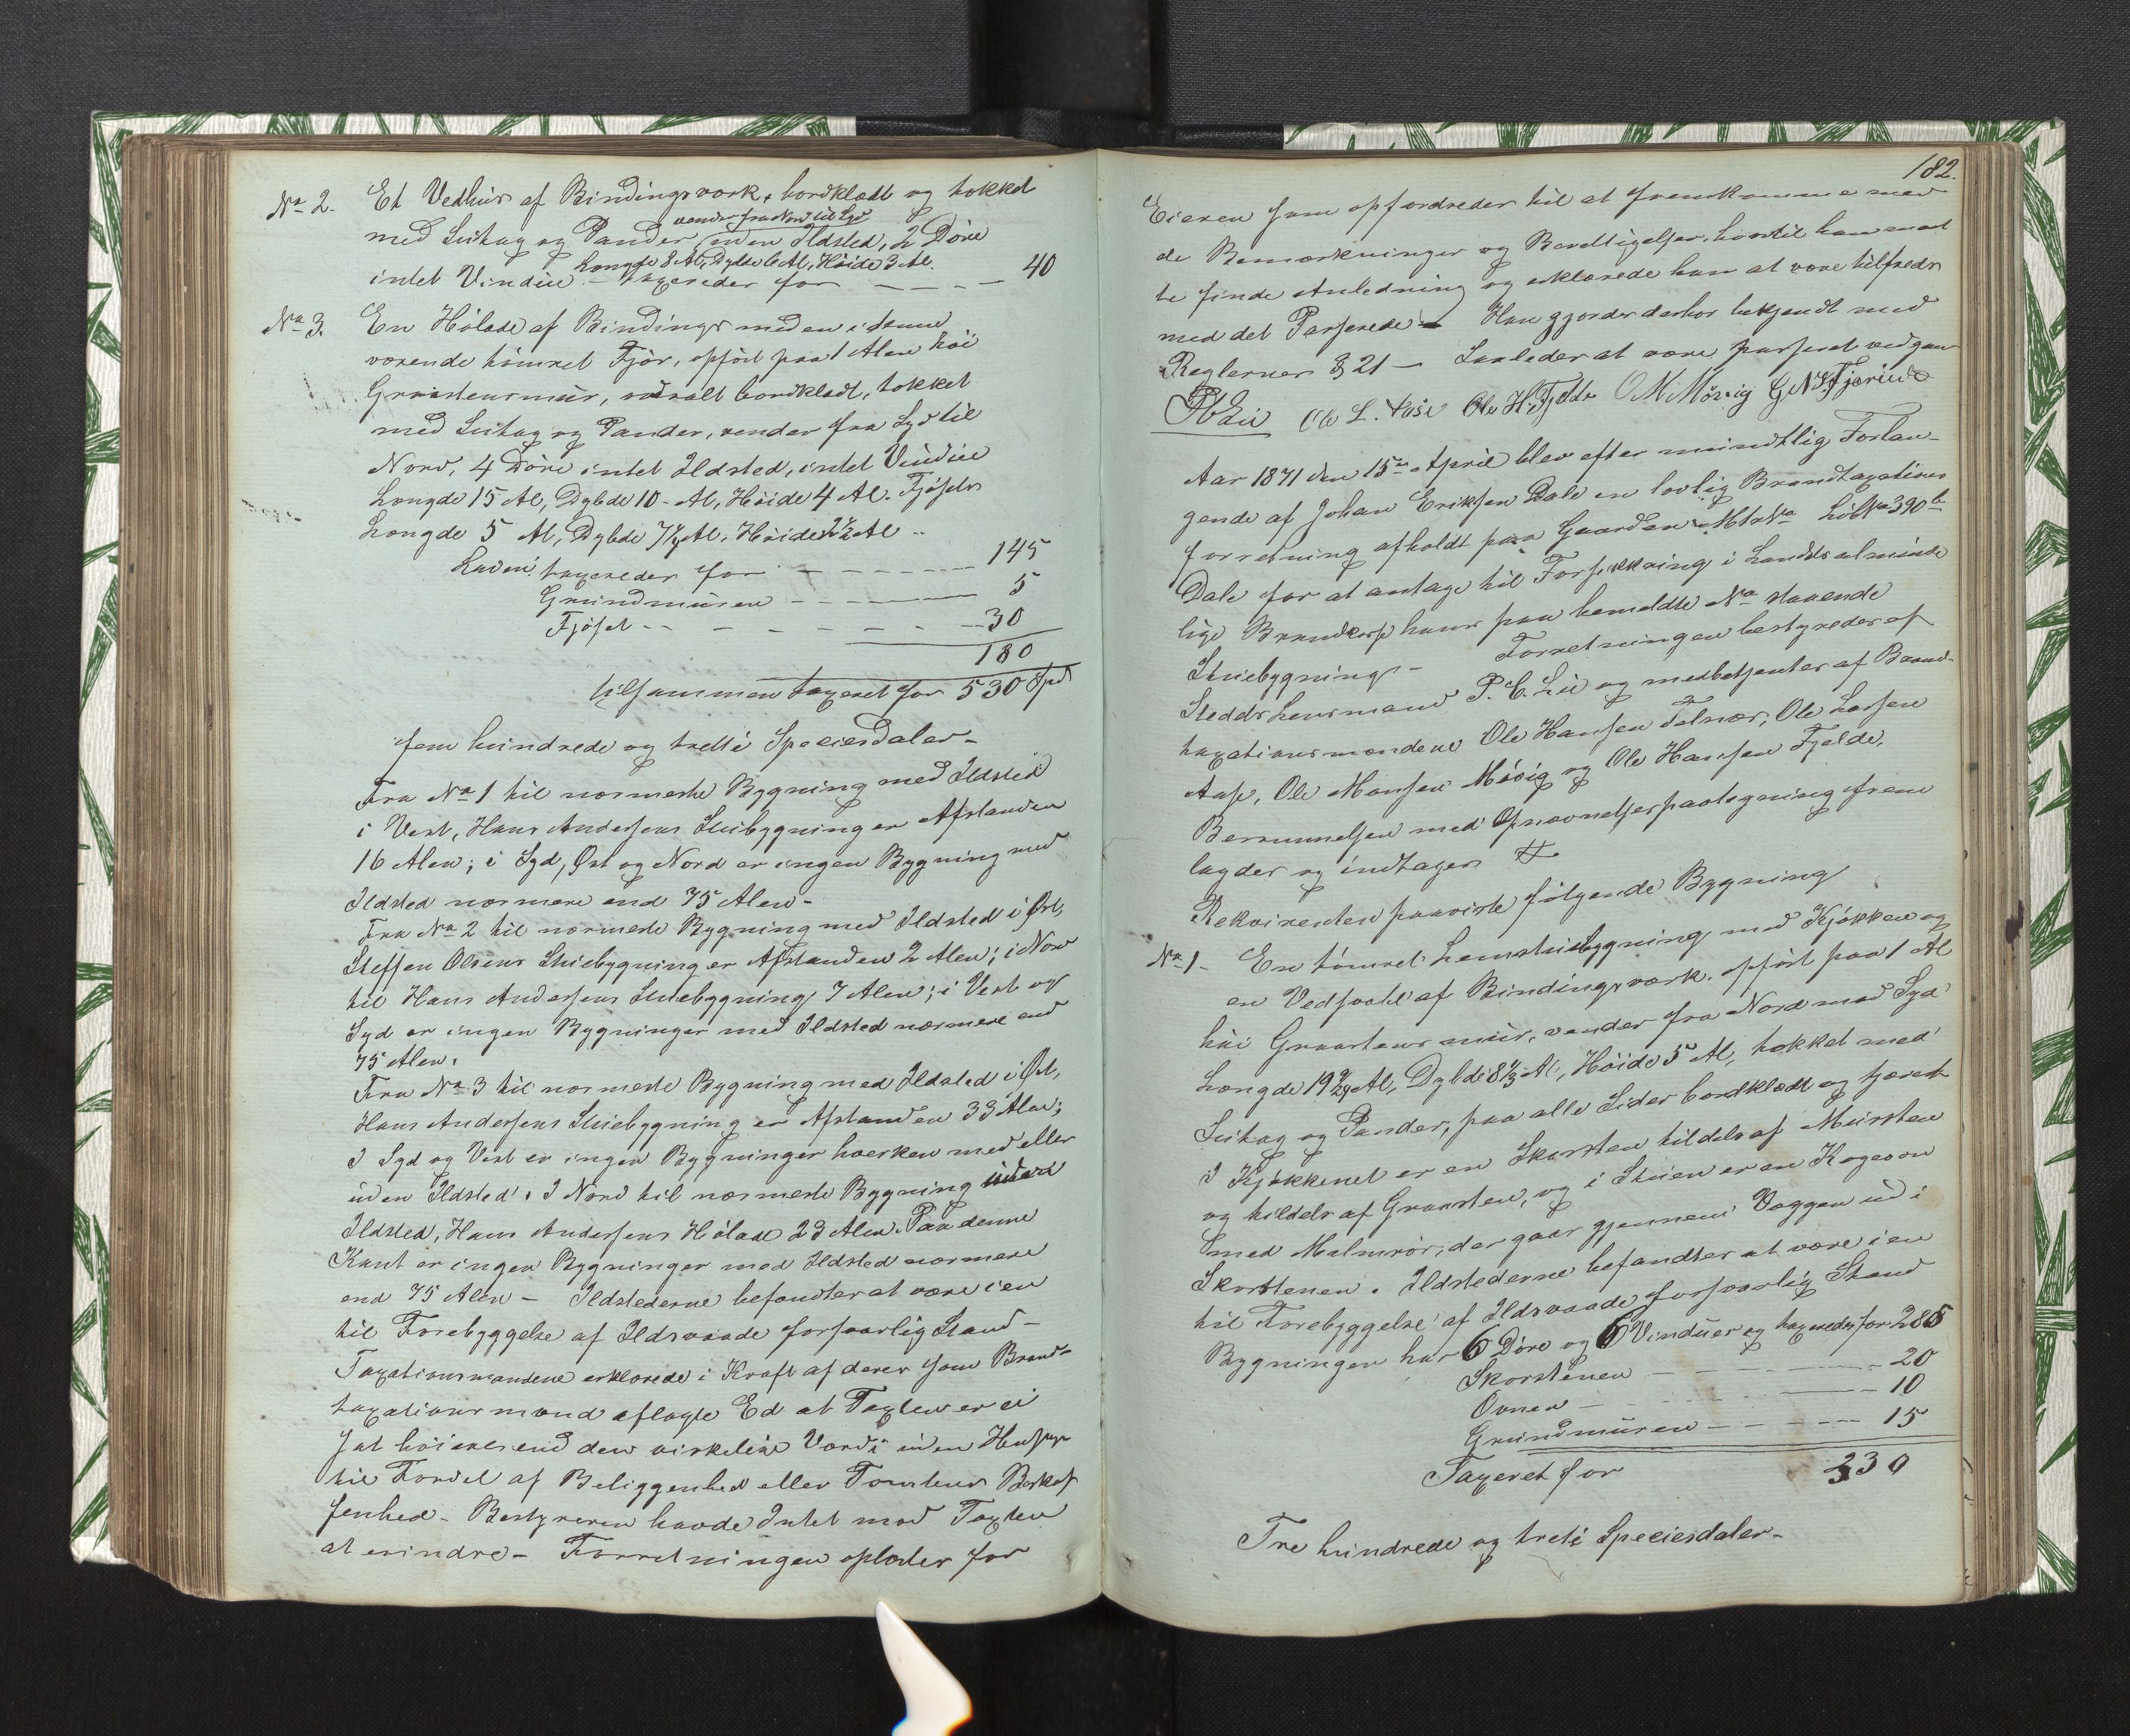 No 2. Et Vedhus af Bindingsværk, bordklædt og tækket
vender fra Nord til Syd
med Suitag og Pander uden Ildsted, 2 Døre
Længde 8 Al, Dybde 6 Al, Høide 3 Al.
intet Vindue – taxeredes for — — — — 40
No 3. En Hølade af Bindings med en i denne
værende tømret Fjøs, opført paa 1 Alen høi
Graastensmur, bordklædt, tækket
med Suitag og Pander, vender fra Syd til
Nord, 4 Døre intet Ildsted, intet Vindue
Længde 15 Al, Dybde 10 Al, Høide 4 Al. Fjøsets
Længde 5 Al, Dybde 7 1/4 Al, Høide 2 1/2 Al
Laden taxeredes for — — — 145
Grundmuren — — — 5
Fjøset — — — 30
180
tilsammen taxeret for 530 Spd
fem hundrede og tretti Speciesdaler –
Fra No 1 til nærmeste Bygning med Ildsted
i Vest, Hans Andersens Stuebygning er Afstanden
16 Alen; i Syd, Øst og Nord er ingen Bygning med
Ildsted nærmere end 75 Alen –
Fra No 2 til nærmeste Bygning med Ildsted i Øst,
Steffen Olsens Stuebygning er Afstanden 2 Alen; i Nord
til Hans Andersens Stuebygning 7 Alen; i Vest og
Syd er ingen Bygninger med Ildsted nærmere end
75 Alen.
Fra No 3 til nærmeste Bygning med Ildsted i Øst,
Hans Andersens Stuebygning er Afstanden 33 Alen;
I Syd og Vest er ingen Bygninger hverken med eller
uden Ildsted. I Nord til nærmeste Bygning uden
Ildsted, Hans Andersens Hølade 23 Alen. Paa denne
Kant er ingen Bygninger med Ildsted nærmere
end 75 Alen – Ildstederne befandtes at være i en
til Forebyggelse af Ildsvaade forsvarlig Stand –
Taxationsmændene erklærede i Kraft af deres som Brand-
taxationsmænd aflagte Ed at Taxten er ei
sat høiere end den virkelige Værdi uden Hensyn
til Fordel af Beliggenhed eller Tomtens Beskaf
fenhed – Bestyreren havde Intet mod Taxten
at erindre – Forretningen oplæstes for
182.
Eieren som opfordredes til at fremkomme med
de Bemærkninger og Berettigelser, hvortil han maat
te finde Anledning og erklærede han at være tilfreds
med det Passerede – Han gjordes derhos bekjendt med
Reglernes § 21 – Saaledes at være passeret vedgaar
P Lie Ole L. Aase Ole H. Fjelde O M Møvig
Aar 1871 den 15de April blev efter mundtlig Forlan-
gende af Johan Eriksen Dale en lovlig Brandtaxations
forretning afholdt paa Gaarden Mtr No Løb No 390 b
Dale for at antage til Forsikkring i Landets alminde
lige Brandkasse hans paa bemeldte No staaende
Stuebygning – Forretningen bestyredes af
Stedets Lensmand P. C. Lie og medbetjentes af Brand-
taxationsmændene Ole Hansen Telnær, Ole Larsen
Aase, Ole Monsen Møvig og Ole Hansen Fjelde,
Berammelsen med Opnævnelsespaategning frem
lagdes og indtages #
Rekvirenten paaviste følgende Bygning
No 1 – En tømret Lemstuebygning med Kjøkken og
en Vedsvahl af Bindingsværk, opført paa 1 Al
høi Graastensmur, vender fra Nord mod Syd
Længde 19 Al, Dybde 8 1/3 Al, Høide 5 Al, tækket med
Suitag og Pander, paa alle Sider bordklædt og tjæret
I Kjøkkenet er en Skorsten tildels af Mursten
og tildels af Graasten, og i Stuen er en Kogeovn
med Malmrør, der gaar gjennem Væggen ud i
Skorstenen. Ildstederne befandtes at være i en
til Forebyggelse af Ildsvaade forsvarlig Stand
Bygningen har 6 Døre og 6 Vinduer og taxeredes for 285
Skorstenen — — — 20
Ovnen — — — 10
Grundmuren — — — 15
Taxeret for 330
Tre hundrede og treti Speciesdaler –